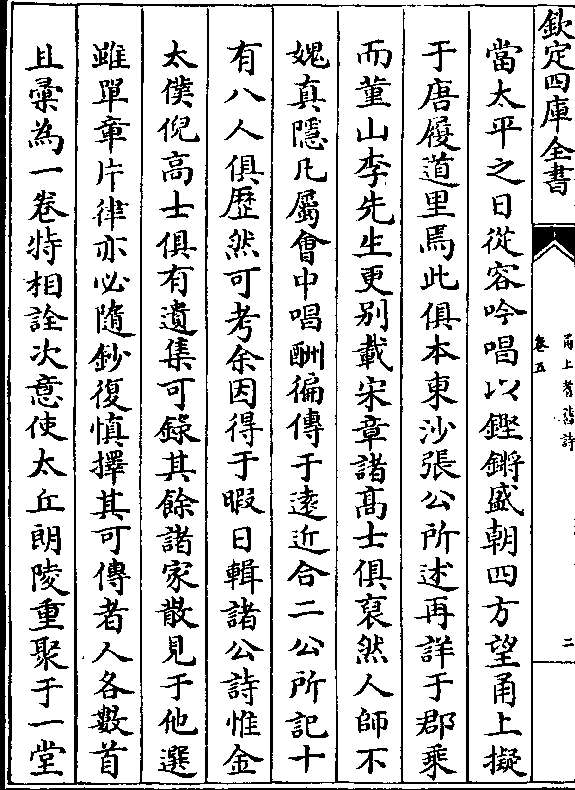 欽定四庫全書
甬上耆舊詩
卷五
二
當太平之日從容吟唱以鏗鏘盛朝四方望甬上擬
于唐履道里焉此俱本東沙張公所述再詳于郡乘
而菫山李先生更别載宋章諸髙士俱裒然人師不
媿真隱凡屬會中唱酬徧傳于遠近合二公所記十
有八人俱歷然可考余因得于暇日輯諸公詩惟金
太僕倪高士俱有遺集可錄其餘諸家散見于他選
雖單章片律亦必隨鈔復慎擇其可傳者人各數首
且彚為一卷特相詮次意使太丘朗陵重聚于一堂